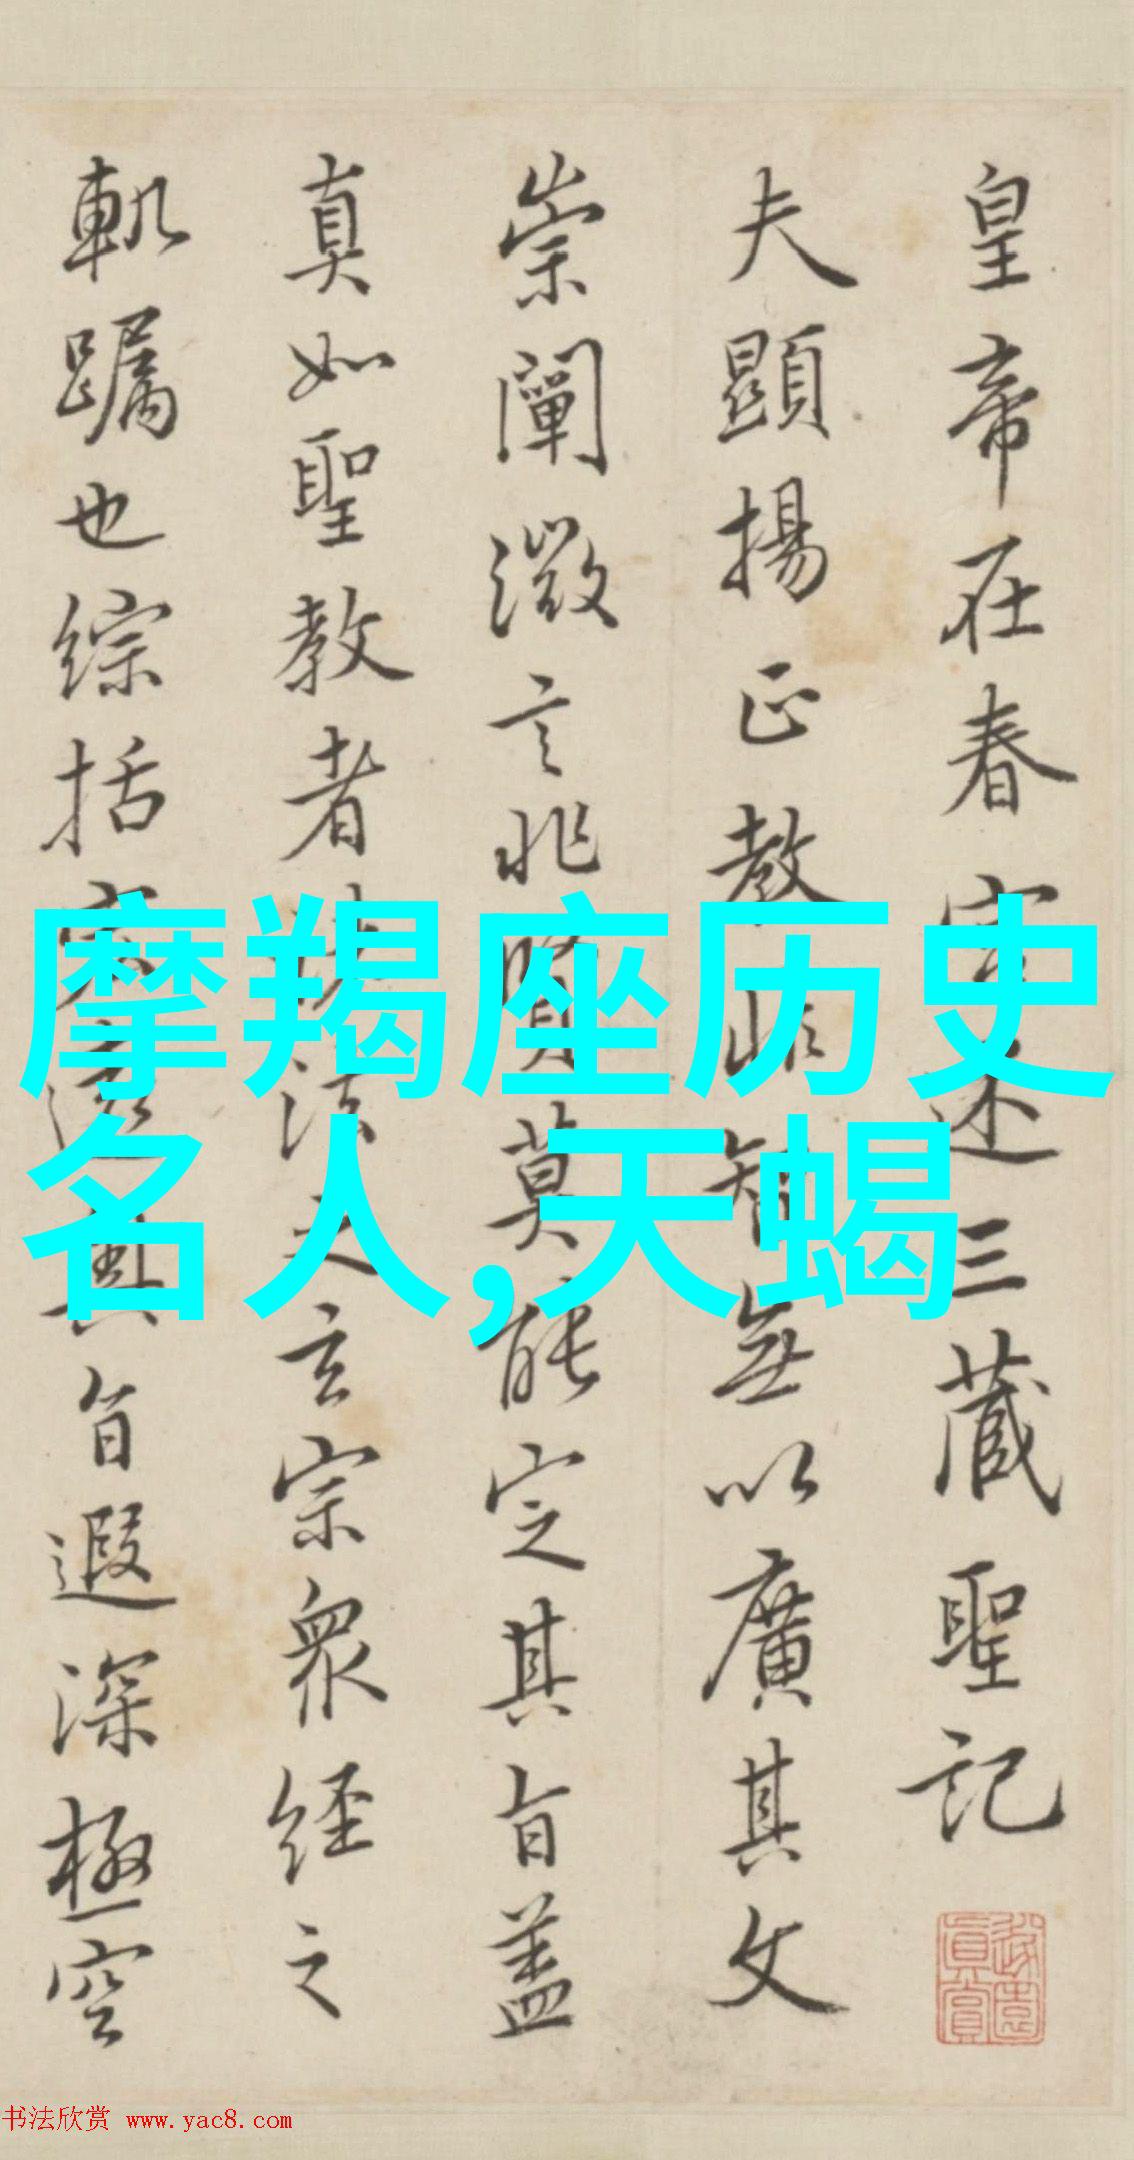 皇帝在春宮述三藏聖記
夫顯揚正教非智無以廣其文
崇闡微言非賢莫能定其旨蓋
真如聖教者諸法之玄宗眾經之
軌躅也綜括宏遠奧旨遐深極空
摩羯座历史
名人,天蝎
书法欣赏 www.yac8.com